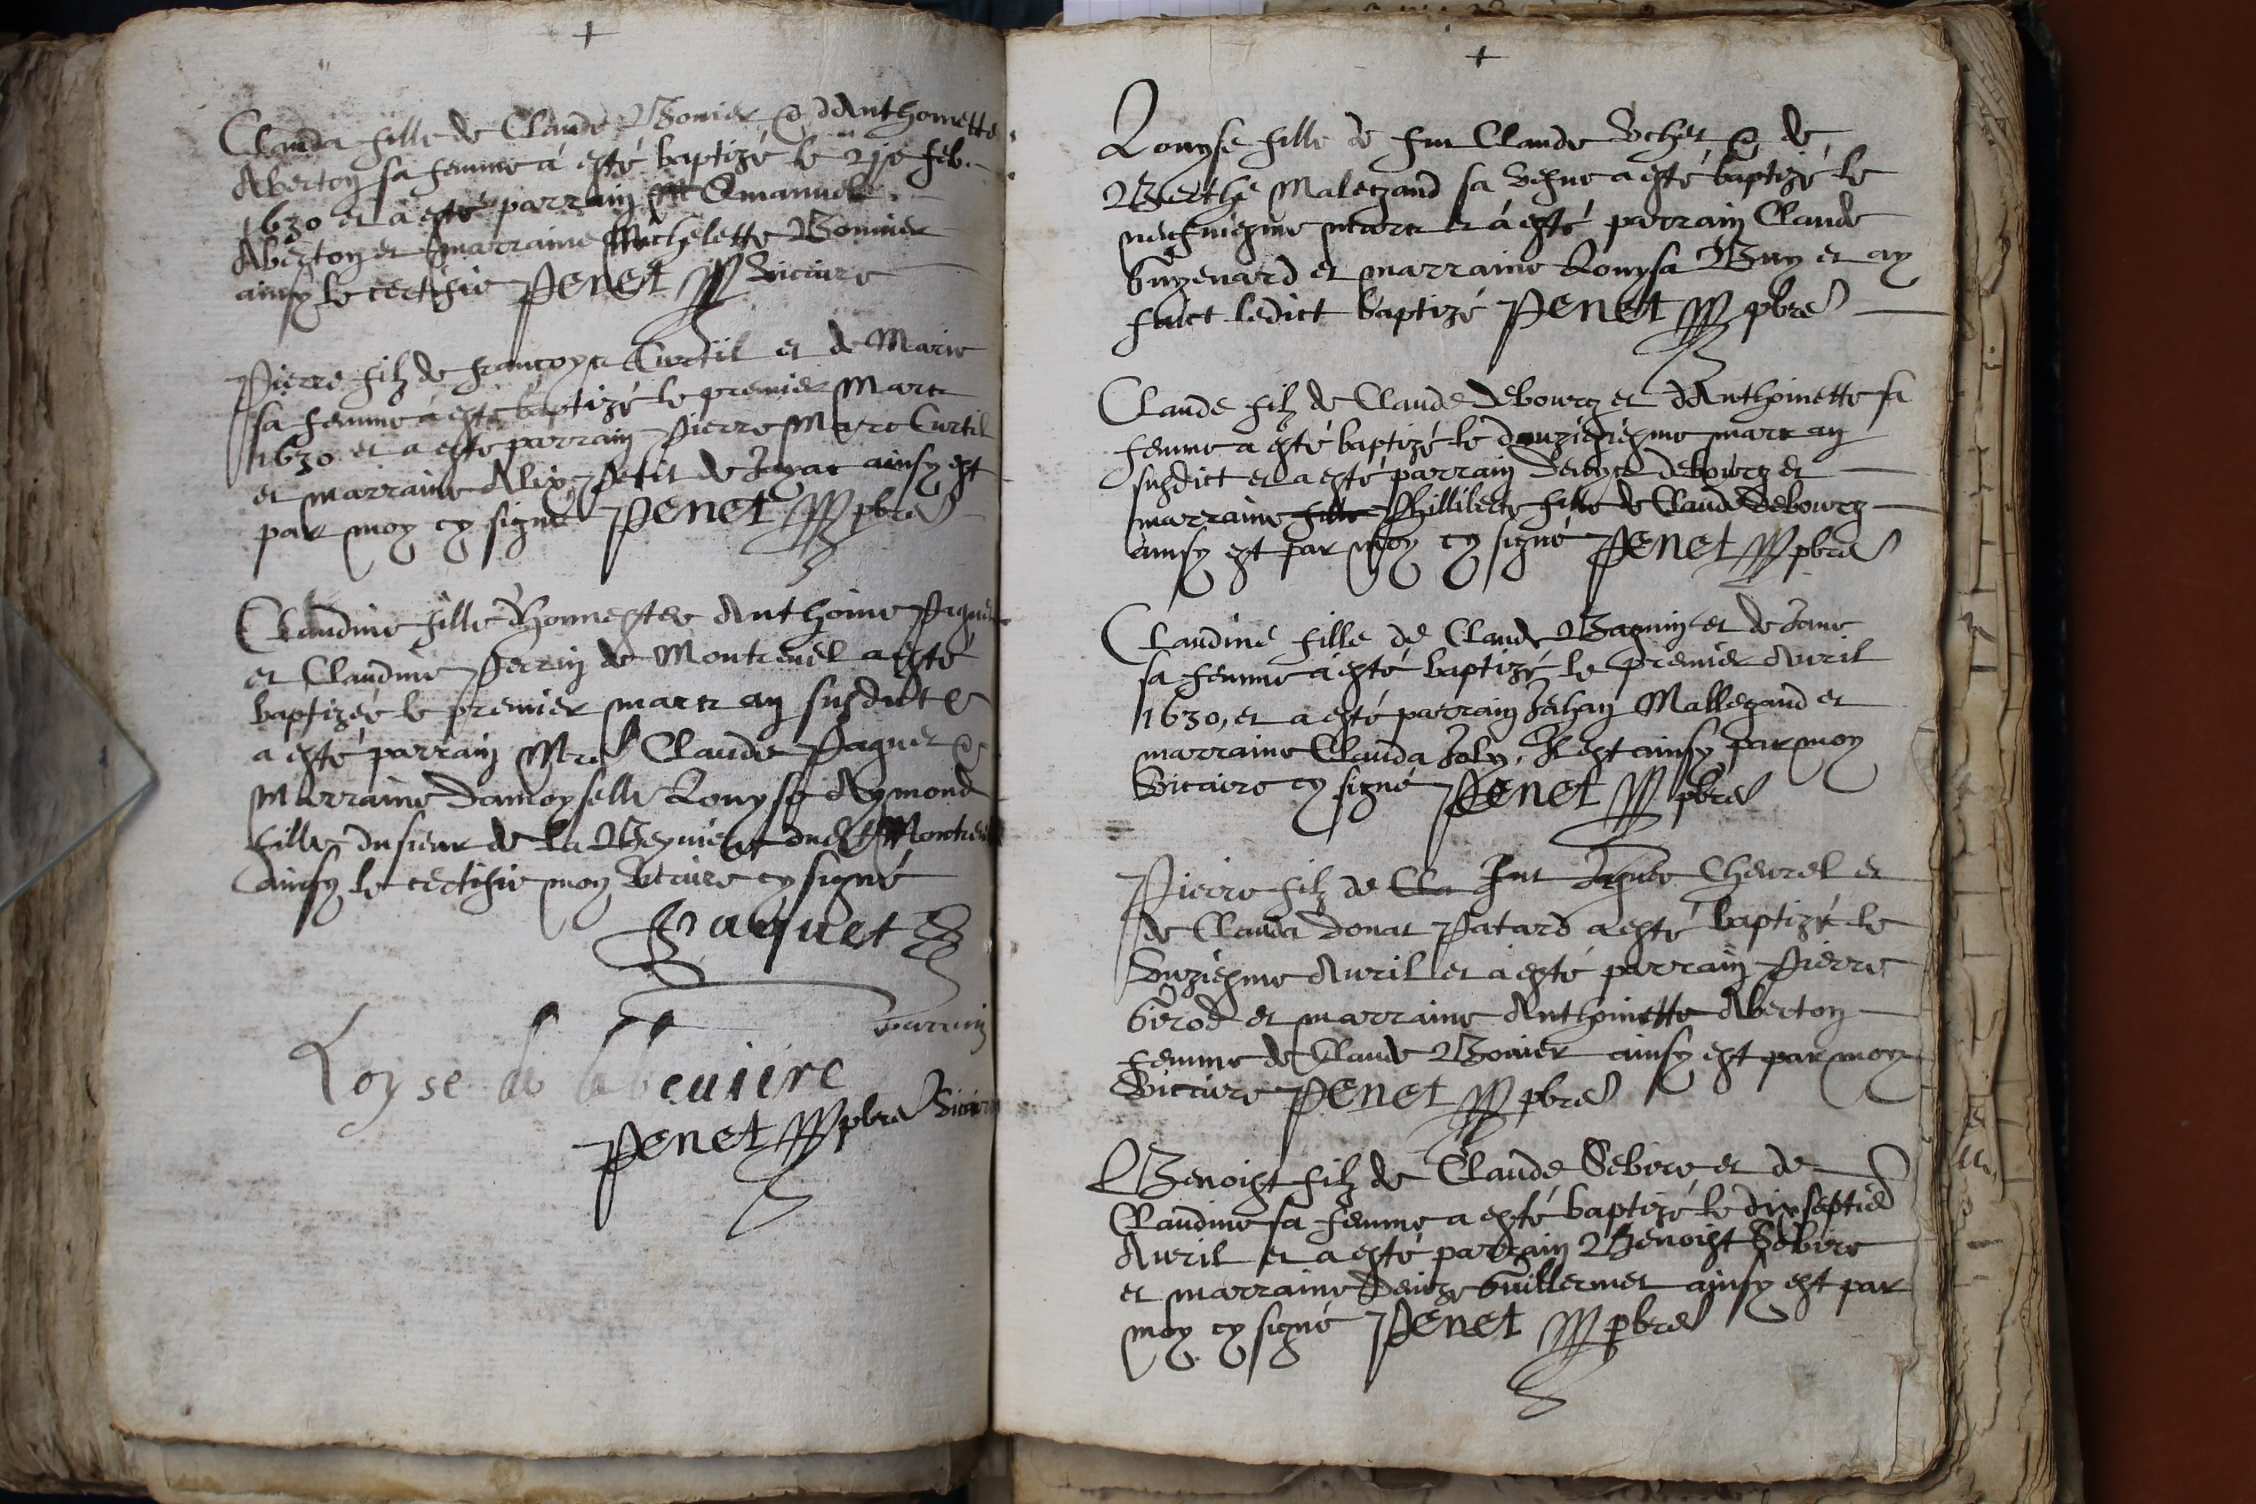 +
Clauda fille de Claude Bonier & dAnthoinette
Aberton sa femme à esté baptizé le 21e feb.
1630 et a esté parrain Emanuel
Aberton et marraine Michelette Bonnier
ainsy le certifie Penet Vicaire
Pierre filz de Françoys Curtil et de Marie
sa femme à esté baptizé le premier Mars
1630 et a esté parrain Pierre Marc Curtil
et marraine Alix Petit de Jayat ainsy est
par moy cy signé Penet pbre
Claudine fille dhonneste Anthoine Paquet
et Claudine Perrin de Montrevel a esté
baptizée le premier mars an susdict &
a esté parrain Mre Claude Paquet &
Marraine damoyselle Louyse Aymond
fille du sieur de la Beyviere dudt Montrevel
Ainsy le certifie moy vicaire cy signé
Paquet
parrain
Loyse de la beviere
Penet pbre Vicaire
+
Louyse fille de fut Claude Vchet & de
Berthe Malegand sa vefue a esté baptizé le
neufuiesme mars et à esté parrain Claude
Guyenard et marraine Louysa Buy et ay
faict ledict baptizé Penet pbre
Claude filz de Claude debourg et dAnthoinette sa
femme a esté baptizé le douziesme mars an
susdict et a esté parrain Denys debourg et
marraine fille Phillibete fille de Claude debourg
ainsy est par moy cy signé Penet pbre
Claudine fille de Claude Baguin et de Jane
sa femme a esté baptizé le premier Avril
1630, et a esté parrain Jehan Mallegand et
marraine Clauda Joly, Il est ainsy par moy
Vicaire cy signé Penet pbre
Pierre filz de Cla fut Jaques Chevrel et
de Clauda donat Patard a esté baptizé le
Vnziesme Avril et a esté parrain Pierre
Girod et marraine Anthoinette Aberton
femme de Claude Bonier ainsy est par moy
Vicaire Penet pbre
Benoist filz de Claude Sebire et de
Claudine sa femme a esté baptizé le dixseptie
Avril et a esté parrain Benoist Sebire
et marraine Denize Guillermet ainsy est par
moy cy signé Penet pbre